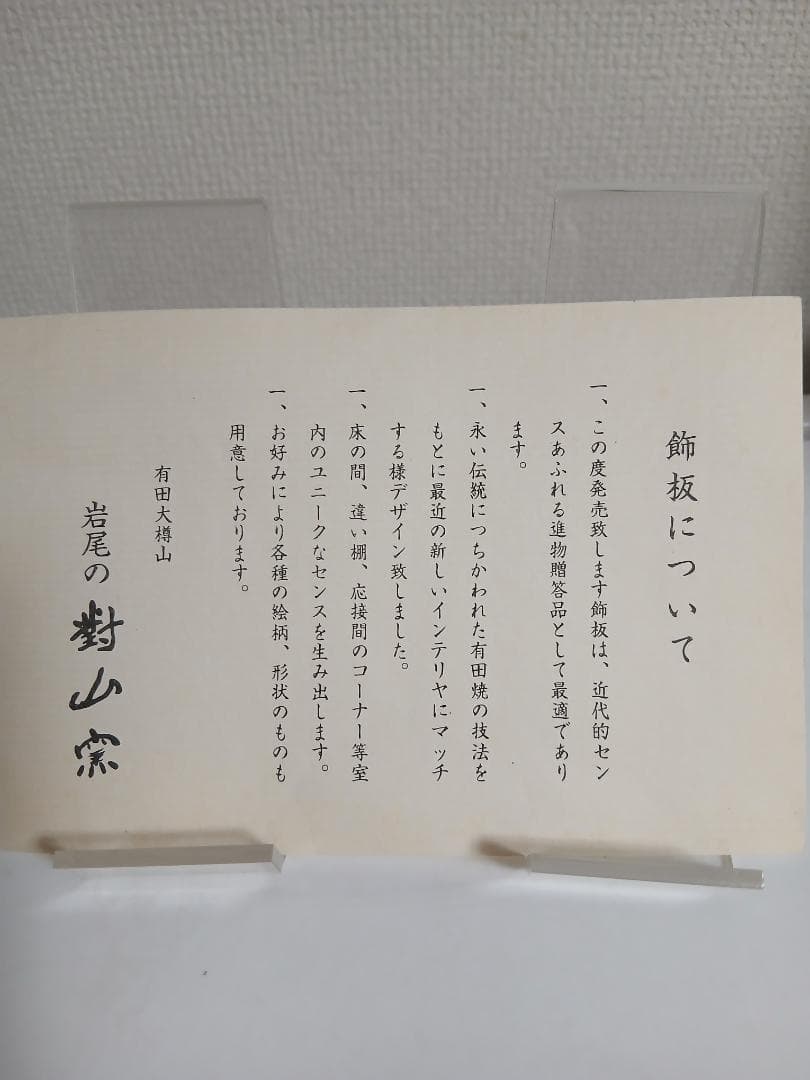 飾板について
一、この度発売致します飾板は、近代的セン
スあふれる進物贈答品として最適であり
ます。
一、永い伝統につちかわれた有田焼の技法を
もとに最近の新しいインテリヤにマッチ
する様デザイン致しました。
一、床の間、違い棚、応接間のコーナー等室
内のユニークなセンスを生み出します。
一、お好みにより各種の絵柄、形状のものも
用意しております。
有田大樽山
岩尾の對山窯